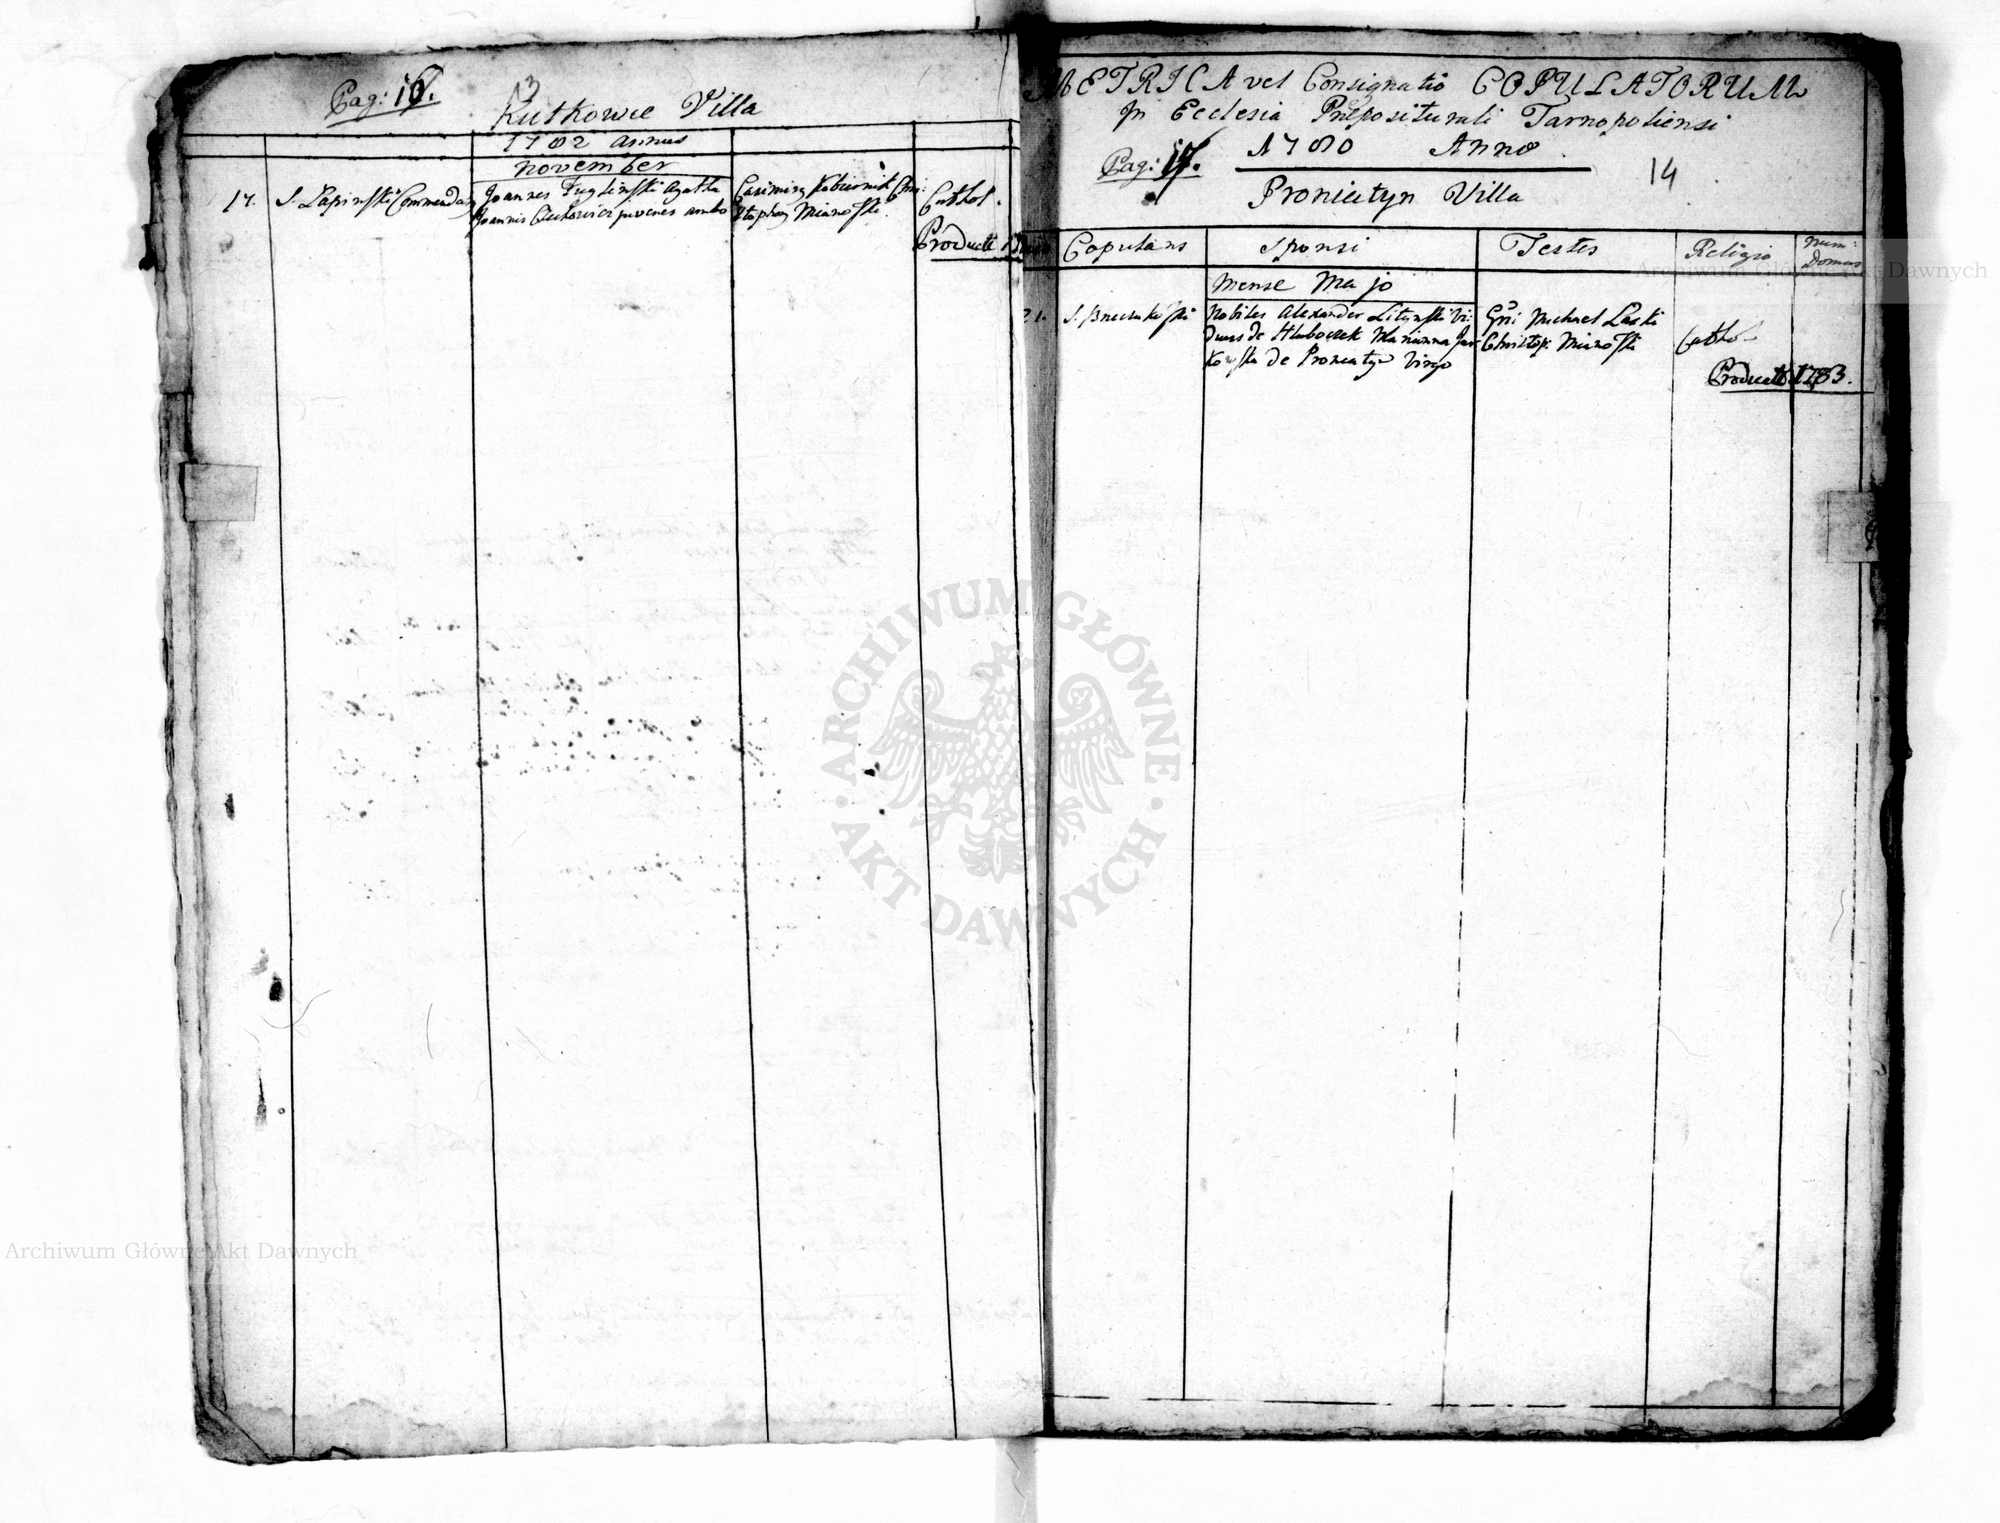 Pag: 16.
13
Kutkowce Villa
1782 annus
November
17. S. Lapinski Commendary
Joannes Agatha
Joannis juvenes ambo
Casimiry Christophory Mianoski.
Cathol.
Product
METRICA vel Consignatio COPULATORUM
In Ecclesia Præpositurali Tarnopoliensi
Pag: 17. 1780 Anno
14
Proniatyn Villa
Copulans Sponsi Testes Religio Num: Domus
Mense Majo
21. S.
Nobiles Alexander Litynski Vi:
duus de Hluboczek Marianna Jar
koska de Proniatyn Virgo
Gni Michael Laski
Christop. Mianoski
Catho.
Product 1783.
Archiwum Główne Akt Dawnych
ARCHIWUM GŁÓWNE · AKT DAWNYCH ·
Archiwum Główne Akt Dawnych